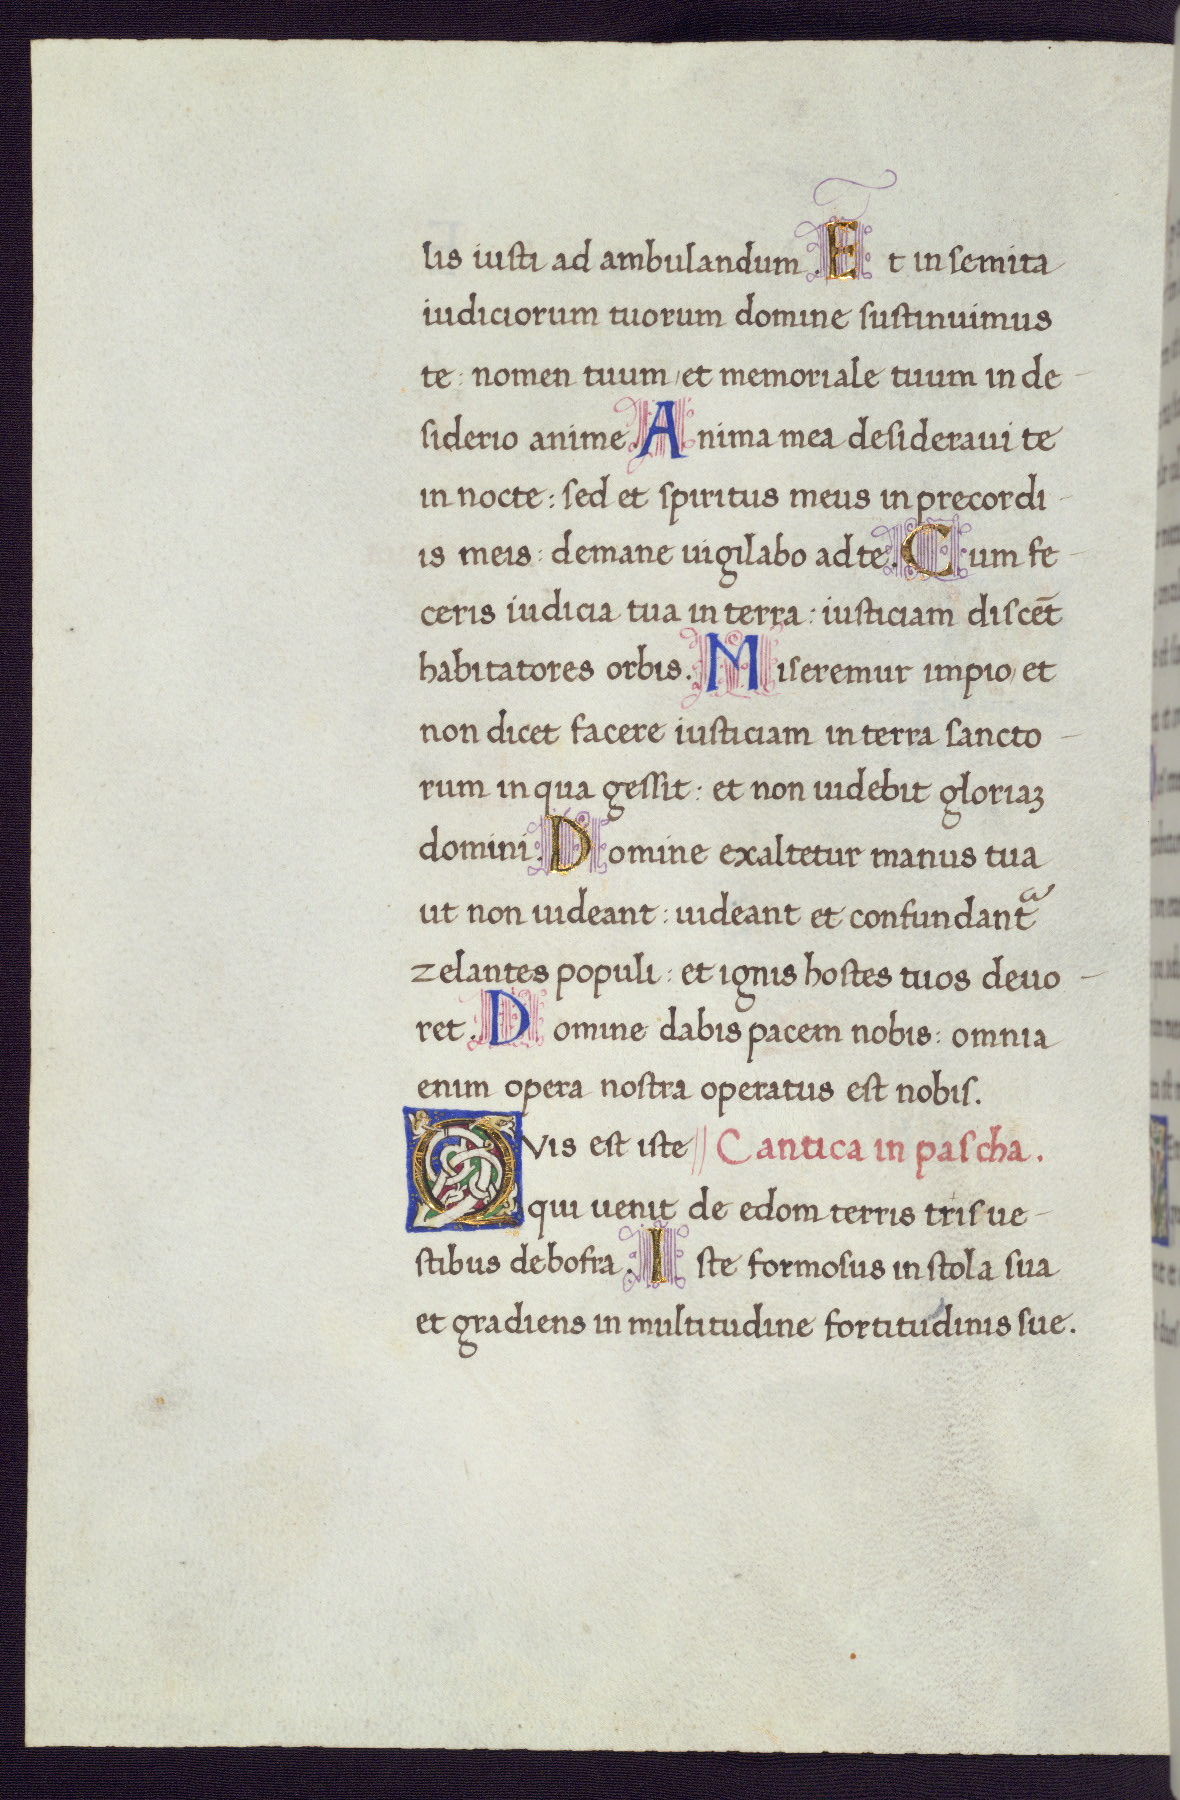 lis iusti ad ambulandum. Et in semita
iudiciorum tuorum domine sustinuimus
te: nomen tuum, et memoriale tuum in de-
siderio anime. Anima mea desideraui te
in nocte: sed et spiritus meus in precordi-
is meis: de mane uigilabo ad te. Cum fe-
ceris iudicia tua in terra: iusticiam discēt
habitatores orbis. Miseremur impio, et
non dicet facere iusticiam in terra sancto-
rum in qua gessit: et non uidebit gloriaꝫ
domini. Domine exaltetur manus tua
ut non uideant: uideant et confundant᷑
zelantes populi: et ignis hostes tuos deuo-
ret. Domine dabis pacem nobis: omnia
enim opera nostra operatus est nobis.
QVis est iste Cantica in pascha.
qui uenit de edom terris tris ue-
stibus de bosra. Iste formosus in stola sua
et gradiens in multitudine fortitudinis sue.